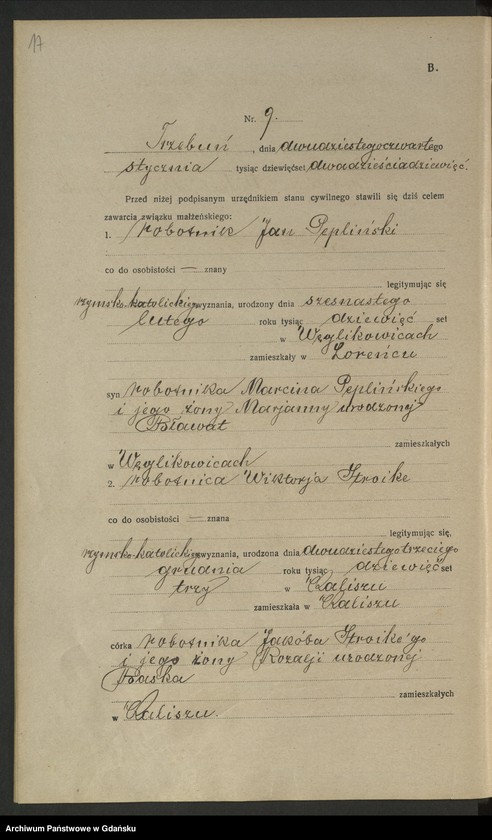 17
B.
Nr. 9.
Trzebuń, dnia dwudziestegoczwartego
stycznia tysiąc dziewięćset dwadzieściadziewięć.
Przed niżej podpisanym urzędnikiem stanu cywilnego stawili się dziś celem
zawarcia związku małżeńskiego:
1. robotnik Jan Pepliński
co do osobistości — znany
legitymując się
rzymsko katolickiego wyznania, urodzony dnia szesnastego
lutego roku tysiąc dziewięć set
w Węglikowicach
zamieszkały w Loreńcu
syn robotnika Marcina Peplińskiego
i jego żony Marjanny urodzonej
zamieszkałych
w Węglikowicach
2. robotnica Wiktorja Stroike
co do osobistości — znana
legitymując się,
rzymsko-katolickiego wyznania, urodzona dnia dwudziestego trzeciego
grudnia roku tysiąc dziewięć set
trzy w Kaliszu
zamieszkała w Kaliszu
córka robotnika Jakóba Stroike'go
i jego żony Rozalji urodzonej
zamieszkałych
w Kaliszu.
Archiwum Państwowe w Gdańsku